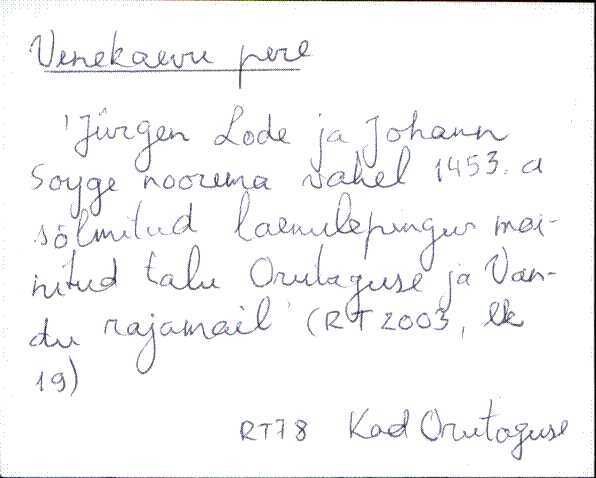 Venekaevu pere
'Jürgen Lode ja Johann
Soyge noorema vahel 1453. a
sõlmitud laenulepingus mai-
nitud talu Orutaguse ja Van-
du rajamail' (RT 2003, lk
19)
RT78 Kad Orutaguse